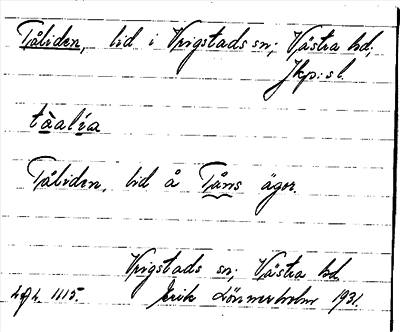 Tåliden, lid i Vrigstads sn; Västra hd;
Jkp:s l.
tàalía
Tåliden, lid å Tåns ägor.
Vrigstads sn; Västra hd,
1115. Erik Lönnerholm 1931.